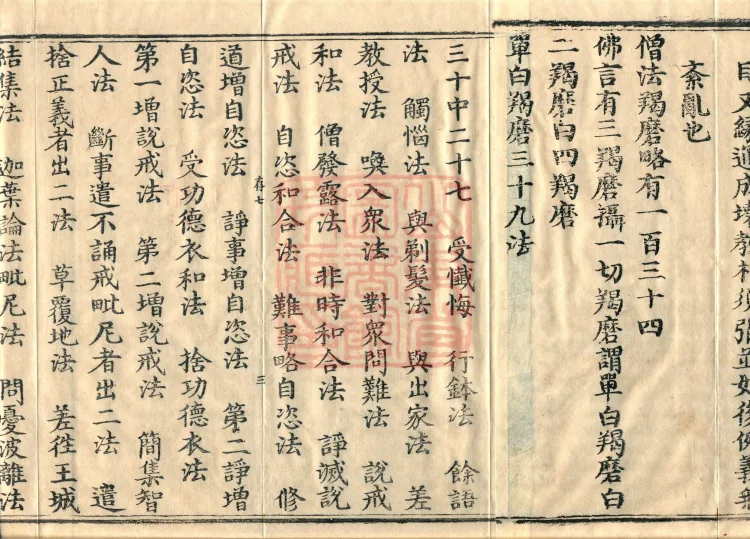 又緣違成壞教相須張並如後例義
紊亂也
僧法羯磨略有一百三十四
佛言有三羯磨攝一切羯磨謂單白羯磨白
二羯磨白四羯磨
單白羯磨三十九法
三十中二十七 受懺悔 行鉢法 餘語
法 觸惱法 與剃髮法 與出家法 差
教授法 喚入衆法 對衆問難法 說戒
和法 僧發露法 非時和合法 諍滅說
戒法 自恣和合法 難事略自恣法 修
存七 三
道增自恣法 諍事增自恣法 第二諍增
自恣法 受功德衣和法 捨功德衣法
第一增說戒法 第二增說戒法 簡集智
人法 斷事遣不誦戒毗尼者出二法 遣
捨正義者出二法 草覆地法 差徃王城
結集法 迦葉論法毗尼法 問憂波離法